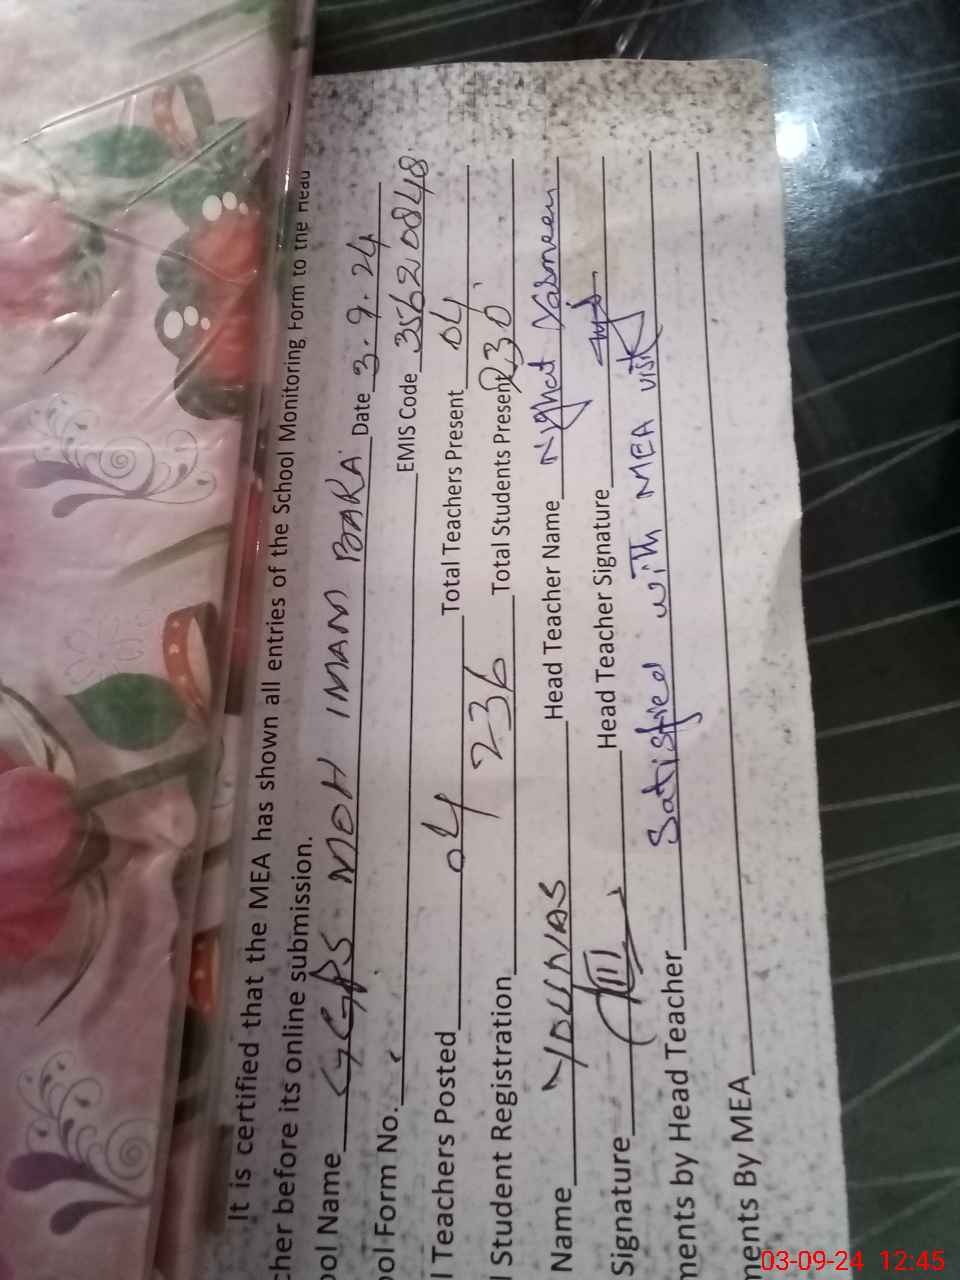 It is certified that the MEA has shown all entries of the School Monitoring Form to the Head
cher before its online submission.
ool Name GGPS MOH IMAM BARA Date 3.9.24
ool Form No. EMIS Code 35620848
l Teachers Posted 04 Total Teachers Present 04
l Student Registration 236 Total Students Present 230
Name YOUNAS Head Teacher Name Nighat Yasmeen
Signature Head Teacher Signature
ments by Head Teacher Satisfied with MEA visit
ments By MEA
03-09-24 12:45